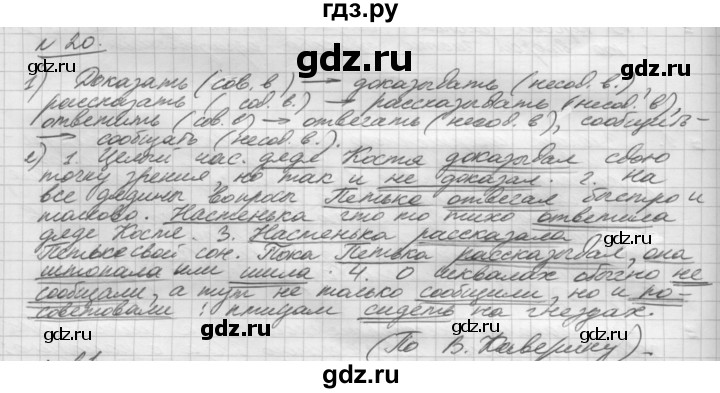 гдз.ру
N 20.
1) Доказать (сов. в.) → доказывать (несов. в.),
рассказать (сов. в.) → рассказывать (несов. в),
ответить (сов. в) → отвечать (несов. в), сообщить-
→ сообщать (несов. в.).
2) 1. Целый час деде Костя доказывал свою
точку зрения, но так и не доказал. 2. На
все дедины вопросы Петька отвечал быстро и
толково. Настенька что то тихо ответила
деде Косте. 3. Настенька рассказала
Петьке свой сон. Пока Петька рассказывал, она
штопала или шила. 4. О шквалах обычно не
сообщали, а тут не только сообщили, но и по-
советовали : птицам сидеть на гнездах.
(По В. Каверину)
gdz.ru